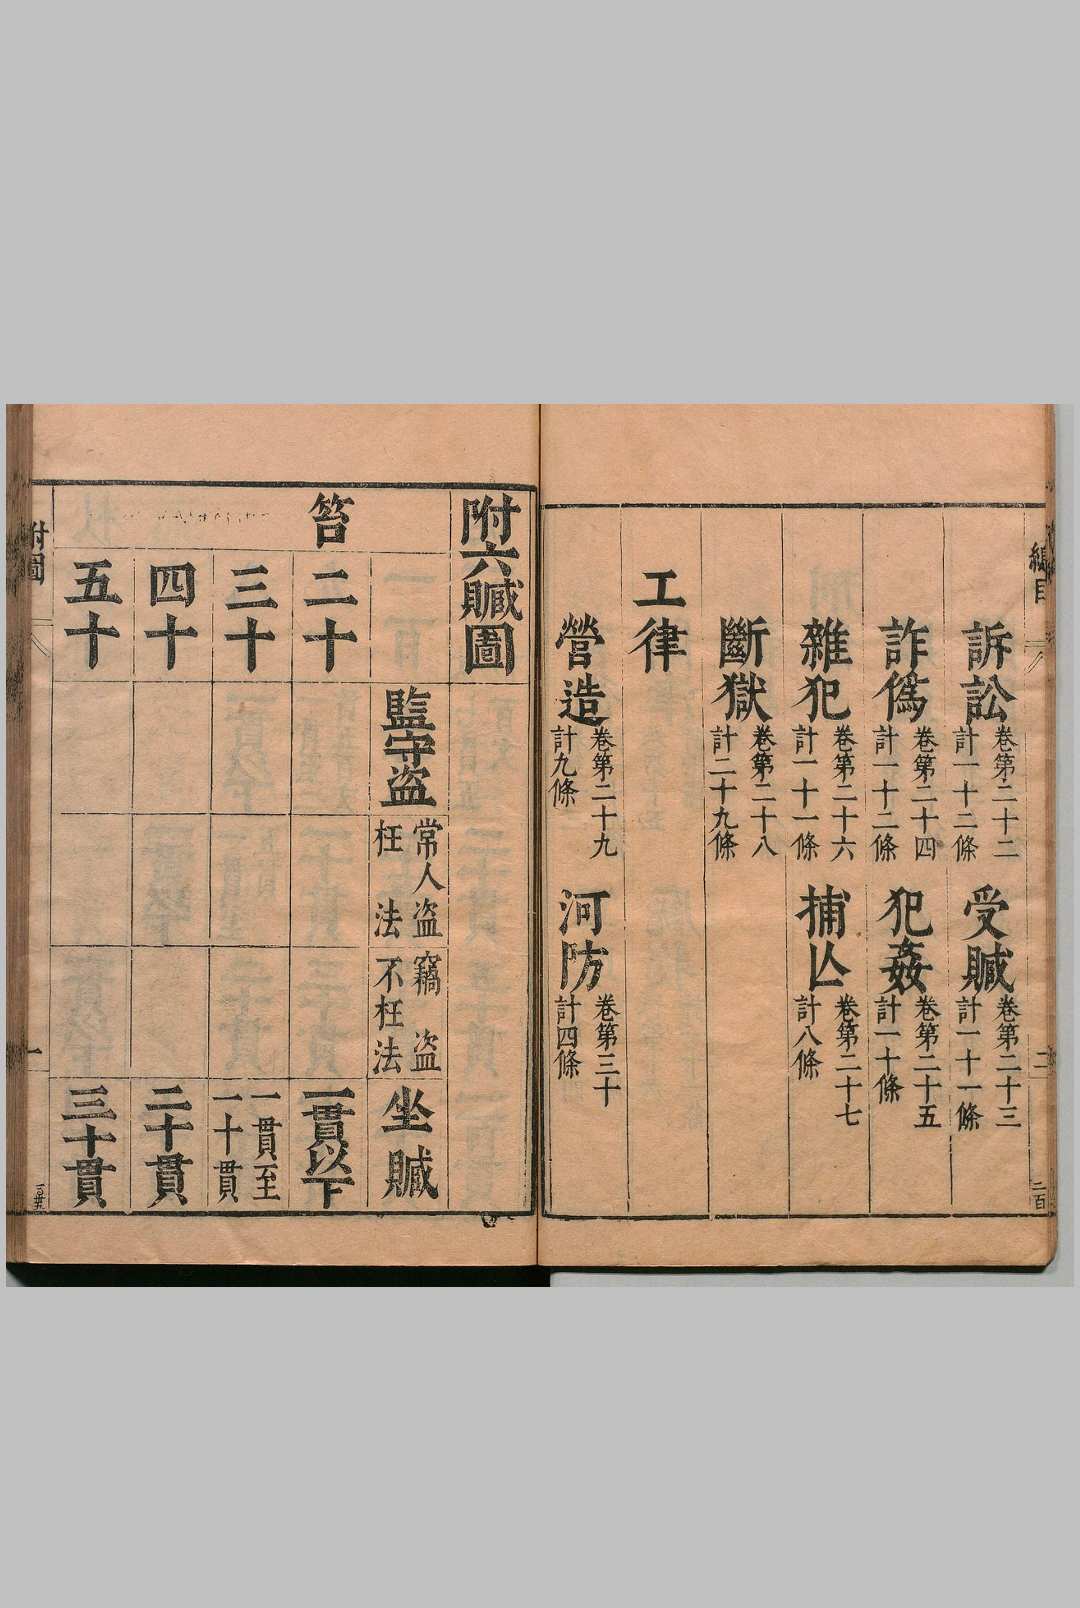 總目
訴訟 卷第二十二 計一十二條 受贓 卷第二十三 計一十一條
詐僞 卷第二十四 計一十二條 犯姦 卷第二十五 計一十條
雜犯 卷第二十六 計一十一條 捕亾 卷第二十七 計八條
斷獄 卷第二十八 計二十九條
工律
營造 卷第二十九 計九條 河防 卷第三十 計四條
二
附六贓圖
笞
監守盗
常人盗 枉法
竊盗 不枉法
坐贓
二十 一貫以下
三十 一貫至一十貫
四十 二十貫
五十 三十貫
附圖
一